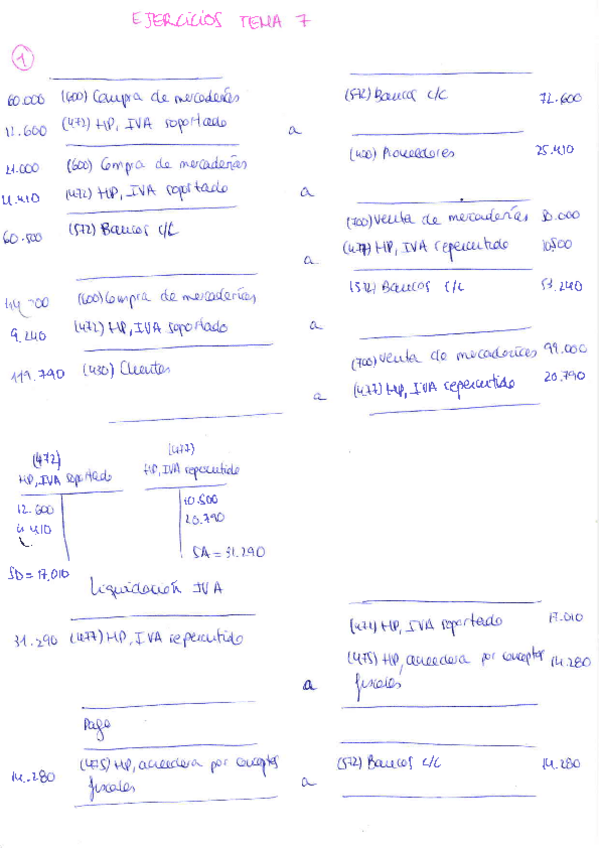 EJERCICIOS TEMA 7
1
60.000 (600) Compra de mercaderías (572) Bancos c/c 72.600
12.600 (472) HP, IVA soportado a
21.000 (600) Compra de mercaderías (400) Proveedores 25.410
4.410 (472) HP, IVA soportado a
60.500 (572) Bancos c/c (700) Venta de mercaderías 50.000
a (477) HP, IVA repercutido 10.500
(600) Compra de mercaderías (572) Bancos c/c 53.240
9.240 (472) HP, IVA soportado a
119.790 (430) Clientes (700) Venta de mercaderías 99.000
a (477) HP, IVA repercutido 20.790
(472) (477)
HP, IVA soportado HP, IVA repercutido
12.600 10.500
4.410 20.790
SA = 31.290
SD = 17.010
Liquidación IVA
31.290 (477) HP, IVA repercutido (472) HP, IVA soportado 17.010
(475) HP, acreedora por conceptos 14.280
a fiscales
Pago
14.280 (475) HP, acreedora por conceptos (572) Bancos c/c 14.280
fiscales a